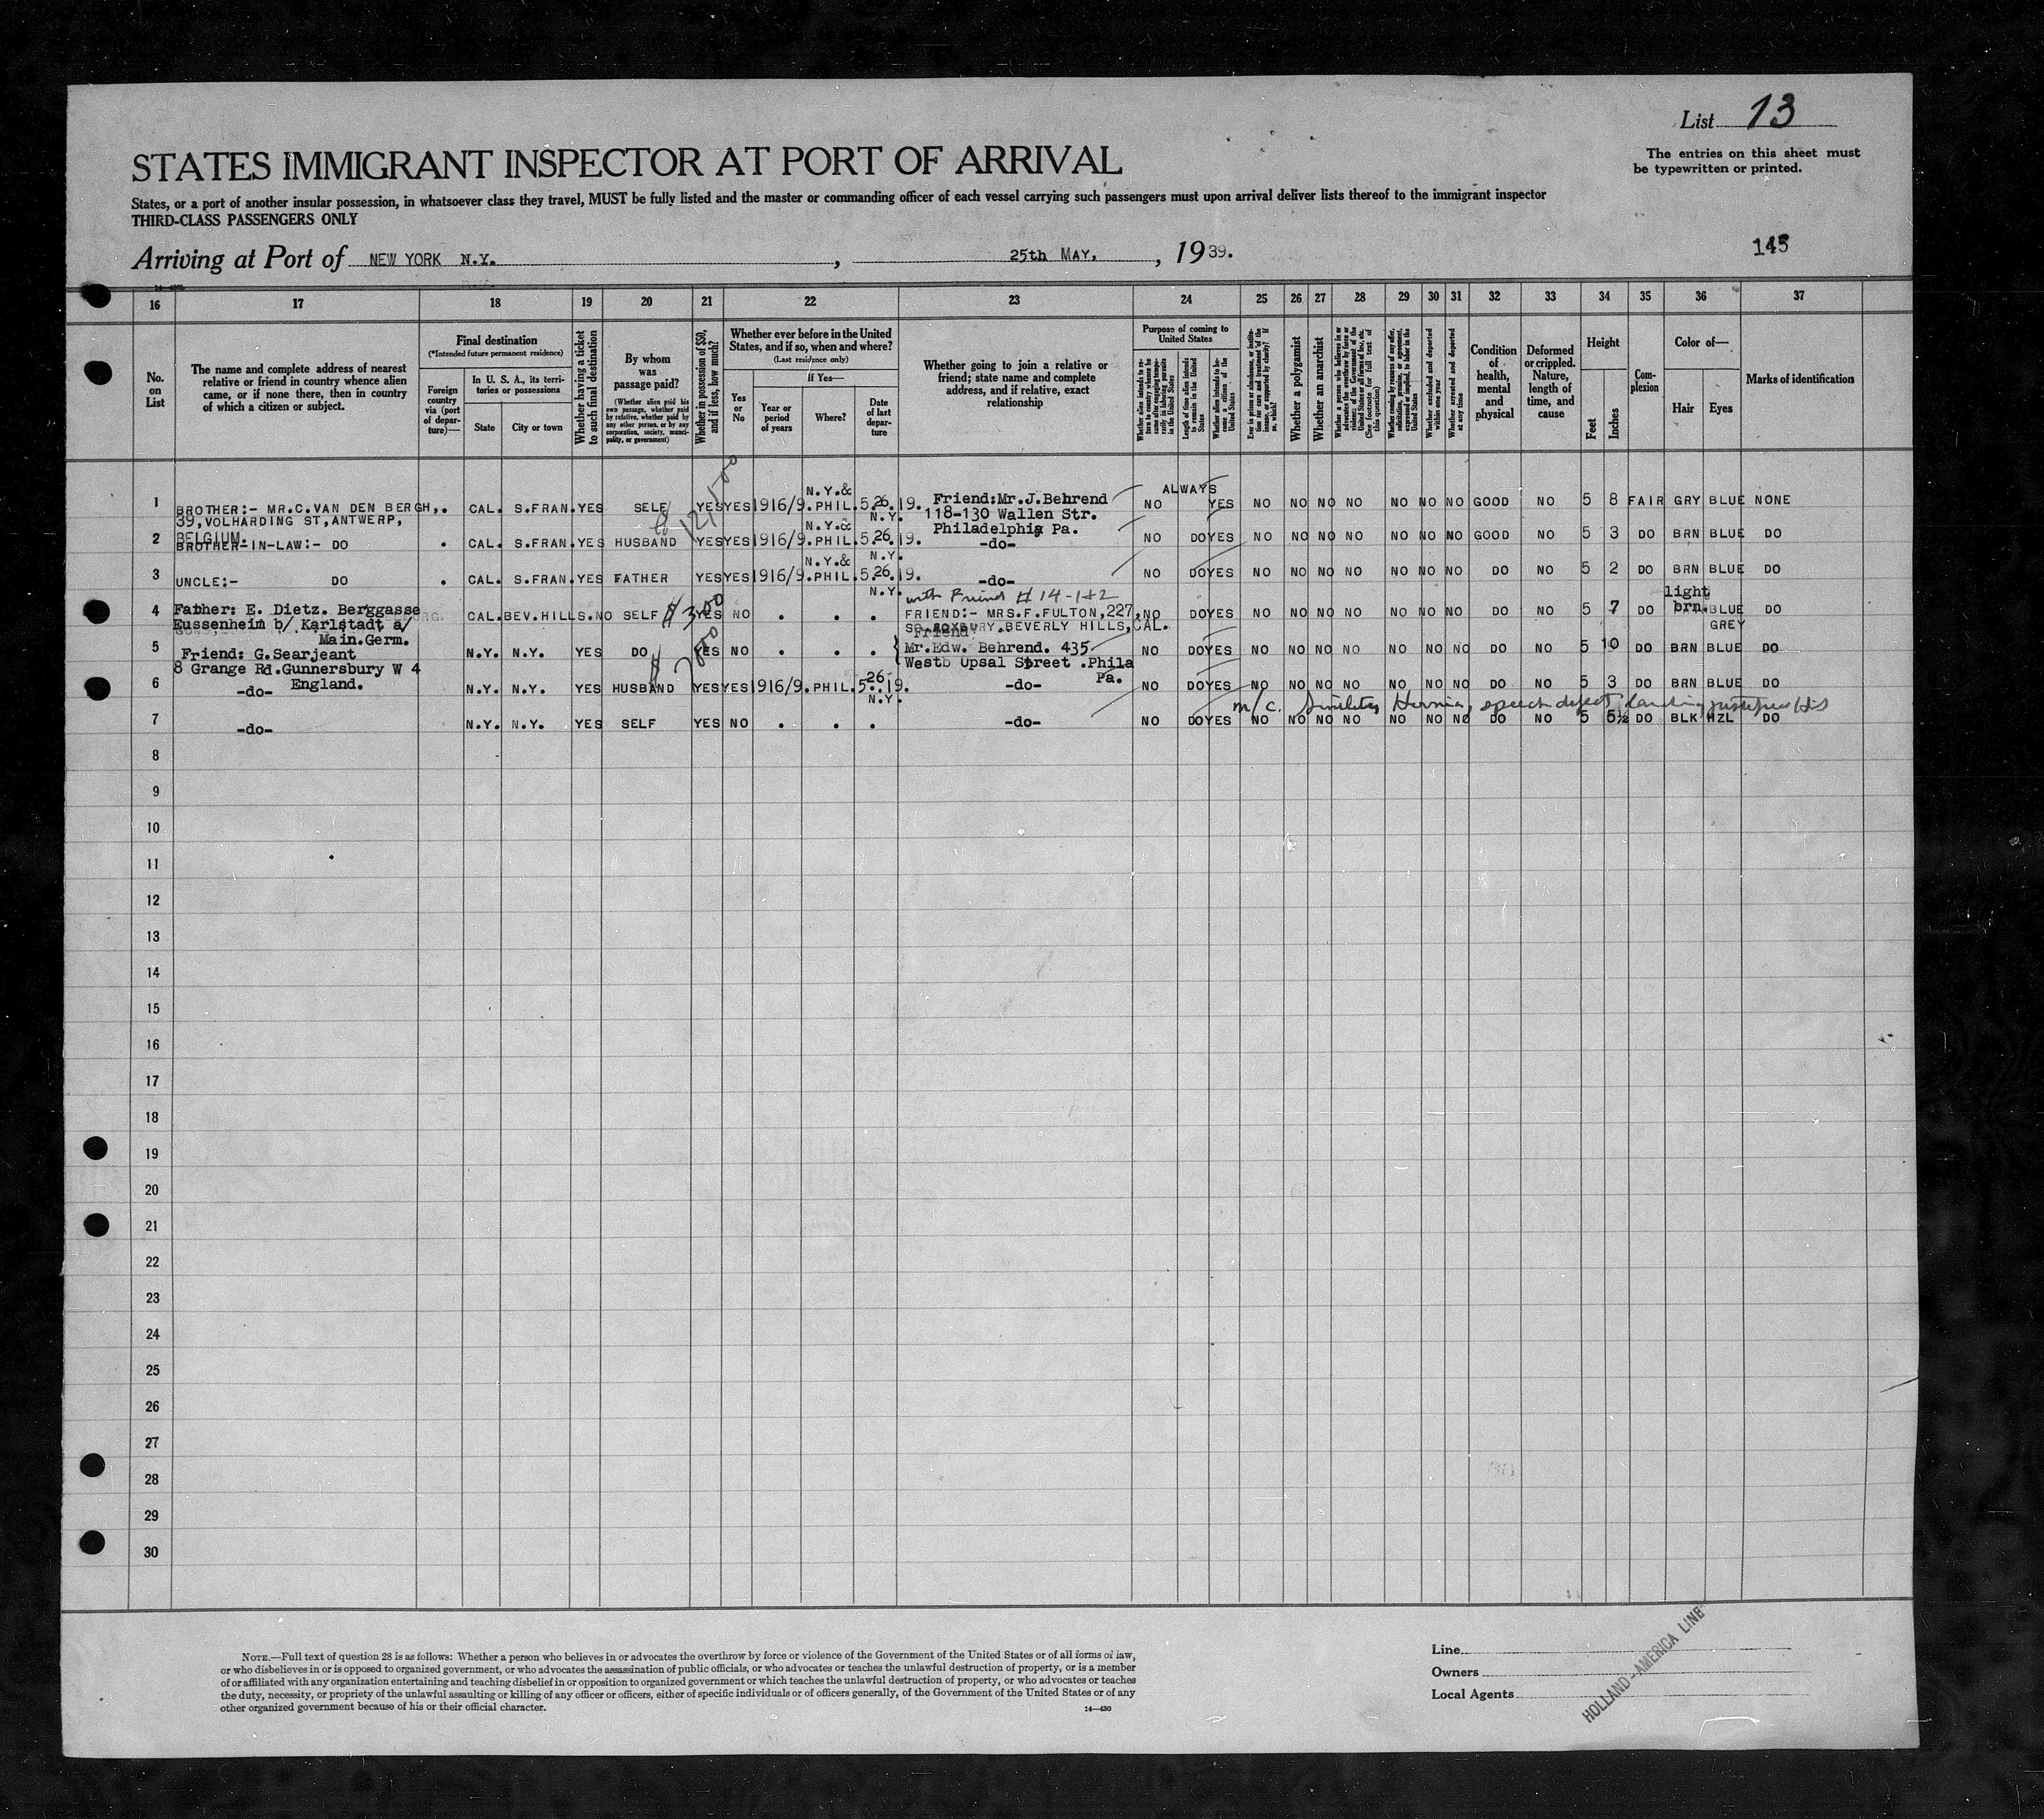 List 13
The entries on this sheet must
be typewritten or printed.
STATES IMMIGRANT INSPECTOR AT PORT OF ARRIVAL
States, or a port of another insular possession, in whatsoever class they travel, MUST be fully listed and the master or commanding officer of each vessel carrying such passengers must upon arrival deliver lists thereof to the immigrant inspector
THIRD-CLASS PASSENGERS ONLY
Arriving at Port of NEW YORK N.Y., 25th MAY, 1939.
145
16 17 18 19 20 21 22 23 24 25 26 27 28 29 30 31 32 33 34 35 36 37
No. on List
The name and complete address of nearest relative or friend in country whence alien came, or if none there, then in country of which a citizen or subject.
Final destination
(*Intended future permanent residence)
Foreign country via (port of departure)—
In U. S. A., its territories or possessions
State
City or town
Whether having a ticket to such final destination
By whom was passage paid?
(Whether alien paid his own passage, whether paid by relative, whether paid by any other person, or by any corporation, society, municipality, or government)
Whether in possession of $50, and if less, how much?
Whether ever before in the United States, and if so, when and where?
(Last residence only)
Yes or No
If Yes—
Year or period of years
Where?
Date of last departure
Whether going to join a relative or friend; state name and complete address, and if relative, exact relationship
Purpose of coming to United States
Whether alien intends to return to country whence he came after engaging temporarily in laboring pursuits in the United States
Length of time alien intends to remain in the United States
Whether alien intends to become a citizen of the United States
Ever in prison or almshouse, or institution for care and treatment of the insane, or supported by charity? If so, which?
Whether a polygamist
Whether an anarchist
Whether excluded and deported within one year
Whether arrested and deported at any time
Condition of health, mental and physical
Deformed or crippled. Nature, length of time, and cause
Height
Feet
Inches
Complexion
Color of—
Hair
Eyes
Marks of identification
1 BROTHER:- MR.C.VAN DEN BERGH, . CAL. S.FRAN. YES SELF YES YES 1916/9. N.Y.& PHIL. 5.26.19. N.Y. Friend:Mr.J.Behrend NO ALWAYS YES NO NO NO NO NO NO NO GOOD NO 5 8 FAIR GRY BLUE NONE
39,VOLHARDING ST,ANTWERP,
BELGIUM.
118-130 Wallen Str.
Philadelphia Pa.
$ 12,1500
2 BROTHER-IN-LAW:- DO . CAL. S.FRAN. YES HUSBAND YES YES 1916/9. N.Y.& PHIL. 5.26.19. N.Y. -do- NO DO YES NO NO NO NO NO NO NO GOOD NO 5 3 DO BRN BLUE DO
3 UNCLE:- DO . CAL. S.FRAN. YES FATHER YES YES 1916/9. N.Y.& PHIL. 5.26.19. N.Y. -do- NO DO YES NO NO NO NO NO NO NO DO NO 5 2 DO BRN BLUE DO
with Friend # 14-1+2
4 Father: E. Dietz. Berggasse CAL. BEV.HILLS. NO SELF $300 YES NO . . . FRIEND:- MRS.F.FULTON,227, NO DO YES NO NO NO NO NO NO NO DO NO 5 7 DO light brn. BLUE GREY DO
Eussenheim b/ Karlstadt a/
Main.Germ.
SO.ROXBURY.BEVERLY HILLS,CAL.
5 Friend: G.Searjeant N.Y. N.Y. YES DO YES NO . . . Friend: Mr.Edw. Behrend. 435 NO DO YES NO NO NO NO NO NO NO DO NO 5 10 DO BRN BLUE DO
8 Grange Rd.Gunnersbury W 4
England.
Westb Upsal Street .Phila
Pa.
6 -do- N.Y. N.Y. YES HUSBAND YES YES 1916/9. PHIL. 5.26.19. N.Y. -do- NO DO YES NO NO NO NO NO NO NO DO NO 5 3 DO BRN BLUE DO
m/c. Hernia, speech defect
7 -do- N.Y. N.Y. YES SELF YES NO . . . -do- NO DO YES NO NO NO NO NO NO NO DO NO 5 5½ DO BLK HZL DO
8
9
10
11
12
13
14
15
16
17
18
19
20
21
22
23
24
25
26
27
28
29
30
NOTE.—Full text of question 28 is as follows: Whether a person who believes in or advocates the overthrow by force or violence of the Government of the United States or of all forms of law,
or who disbelieves in or is opposed to organized government, or who advocates the assassination of public officials, or who advocates or teaches the unlawful destruction of property, or is a member
of or affiliated with any organization entertaining and teaching disbelief in or opposition to organized government or which teaches the unlawful destruction of property, or who advocates or teaches
the duty, necessity, or propriety of the unlawful assaulting or killing of any officer or officers, either of specific individuals or of officers generally, of the Government of the United States or of any
other organized government because of his or their official character.
14—430
Line
Owners
Local Agents
HOLLAND-AMERICA LINE